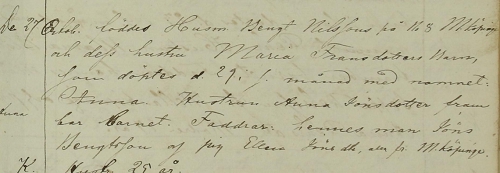 De 27 Octob. föddes Husm Bengt Nilssons på No 8 Mköpinge
och dess hustru Maria Fransdotters Barn,
som döptes d 29 i s. månad med namnet
Anna. Hustrun Anna Jönsdotter fram
bar Barnet. Faddrar: hennes man Jöns
Bengtsson af Pig Ellena Jöns dtr, alla fr. Mköpinge.
Anna
K. Hustr 25 år.